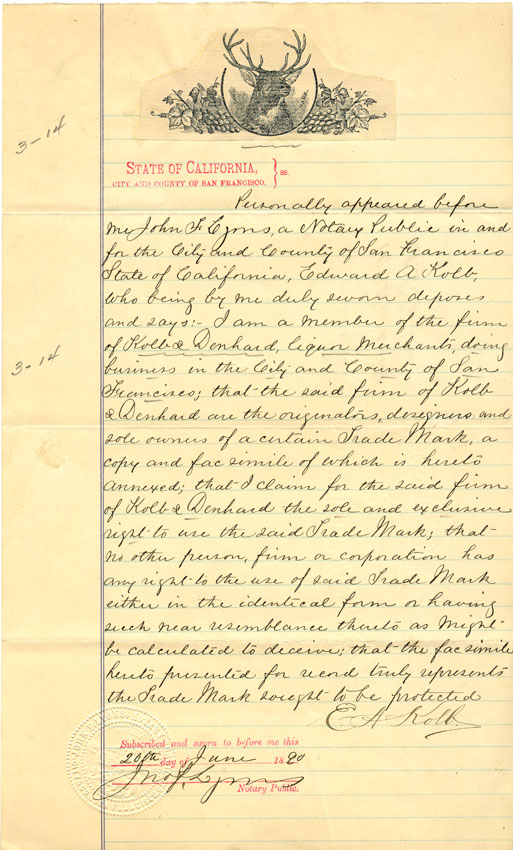 3-14
STATE OF CALIFORNIA,
CITY AND COUNTY OF SAN FRANCISCO.
ss.
Personally appeared before
me John F. Lyons, a Notary Public in and
for the City and County of San Francisco
State of California, Edward A Kolb,
who being by me duly sworn deposes
and says:- I am a member of the firm
of Kolb & Denhard, liquor Merchants, doing
business in the City and County of San
Francisco; that the said firm of Kolb
& Denhard are the originators, designers and
sole owners of a certain Trade Mark, a
copy and fac simile of which is hereto
annexed; that I claim for the said firm
of Kolb & Denhard the sole and exclusive
right to use the said Trade Mark; that
no other person, firm or corporation has
any right to the use of said Trade Mark
either in the identical form or having
such near resemblance thereto as might
be calculated to deceive; that the fac simile
hereto presented for record truly represents
the Trade Mark sought to be protected
E A Kolb
3-14
Subscribed and sworn to before me this
20th day of June 1890
Jno. F. Lyons
Notary Public.